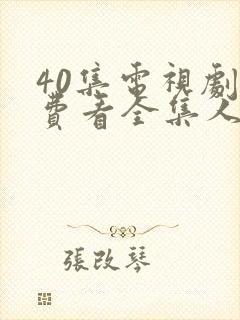 40集電視劇
費看全集人
張改琴